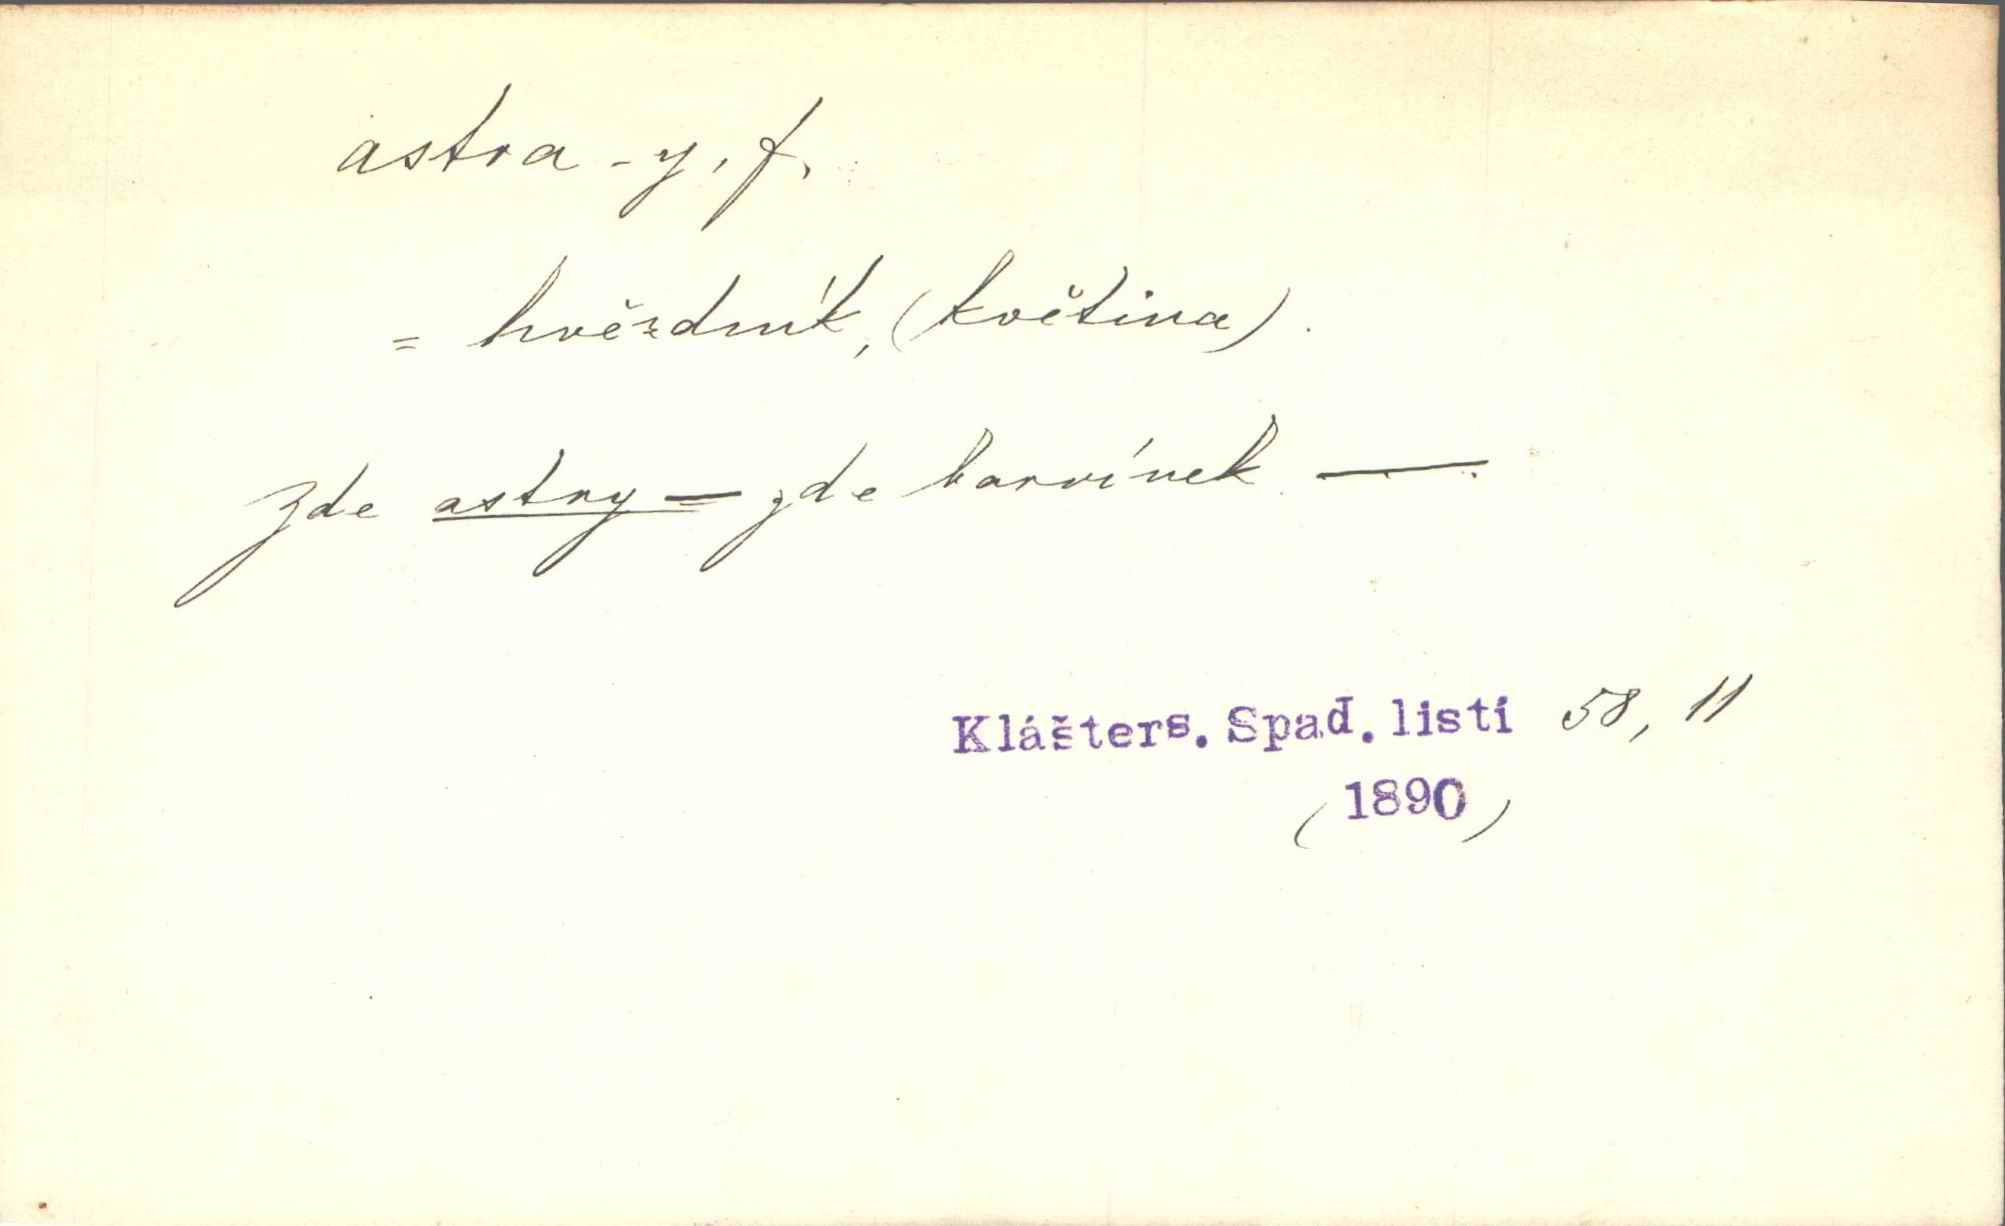 astra -y, f.
= hvězdník, (květina).
Zde astry — zde barvínek —.
Klášters. Spad. listí 58, 11
(1890)